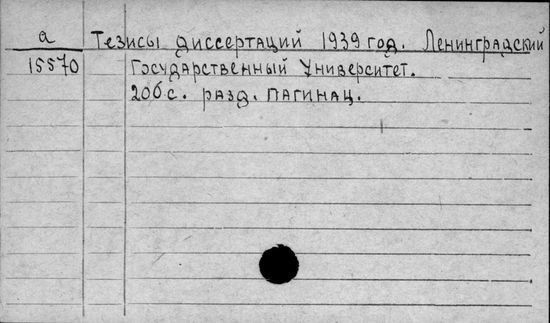 а Тезисы диссертаций 1939 год. Ленинградский
15570 Государственный Университет.
206 с. разд. пагинац.